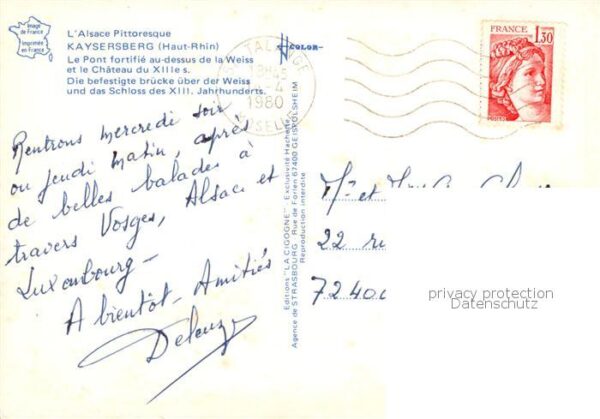 Image
de France
Imprimée
en France
L'Alsace Pittoresque
KAYSERSBERG (Haut-Rhin)
Le Pont fortifié au-dessus de la Weiss
et le Château du XIIIe s.
Die befestigte brücke über der Weiss
und das Schloss des XIII. Jahrhunderts.
COLOR
1980
MOSELLE
FRANCE
1,30
POSTES
Rentrons mercredi soir
ou jeudi matin, après
de belles balades à
travers Vosges, Alsace et
Luxembourg -
A bientôt - Amitiés
Editions "LA CIGOGNE" - Exclusivité Hachette
Agence de STRASBOURG - Rue de Forlen 67400 GEISPOLSHEIM
Reproduction interdite
Mr et
22
72400
privacy protection
Datenschutz